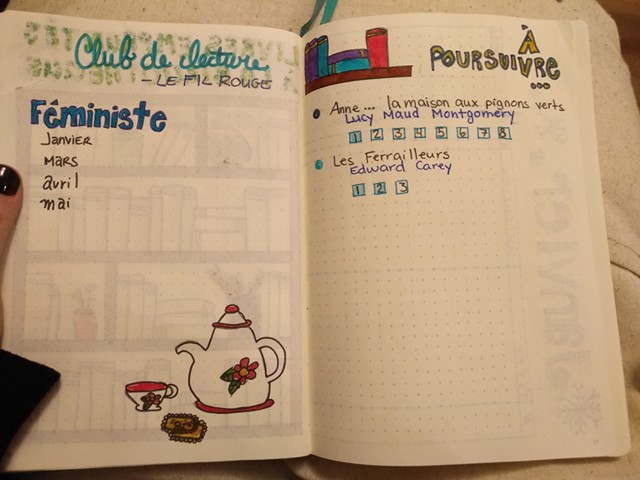 Club de lecture
- LE FIL ROUGE
Féministe
Janvier
mars
avril
mai
À
POURSUIVRE
...
Anne... la maison aux pignons verts
Lucy Maud Montgomery
1 2 3 4 5 6 7 8
Les Ferrailleurs
Edward Carey
1 2 3